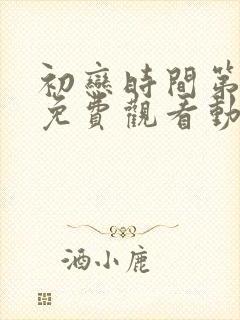 初戀時間第
免費觀看動
酒小鹿